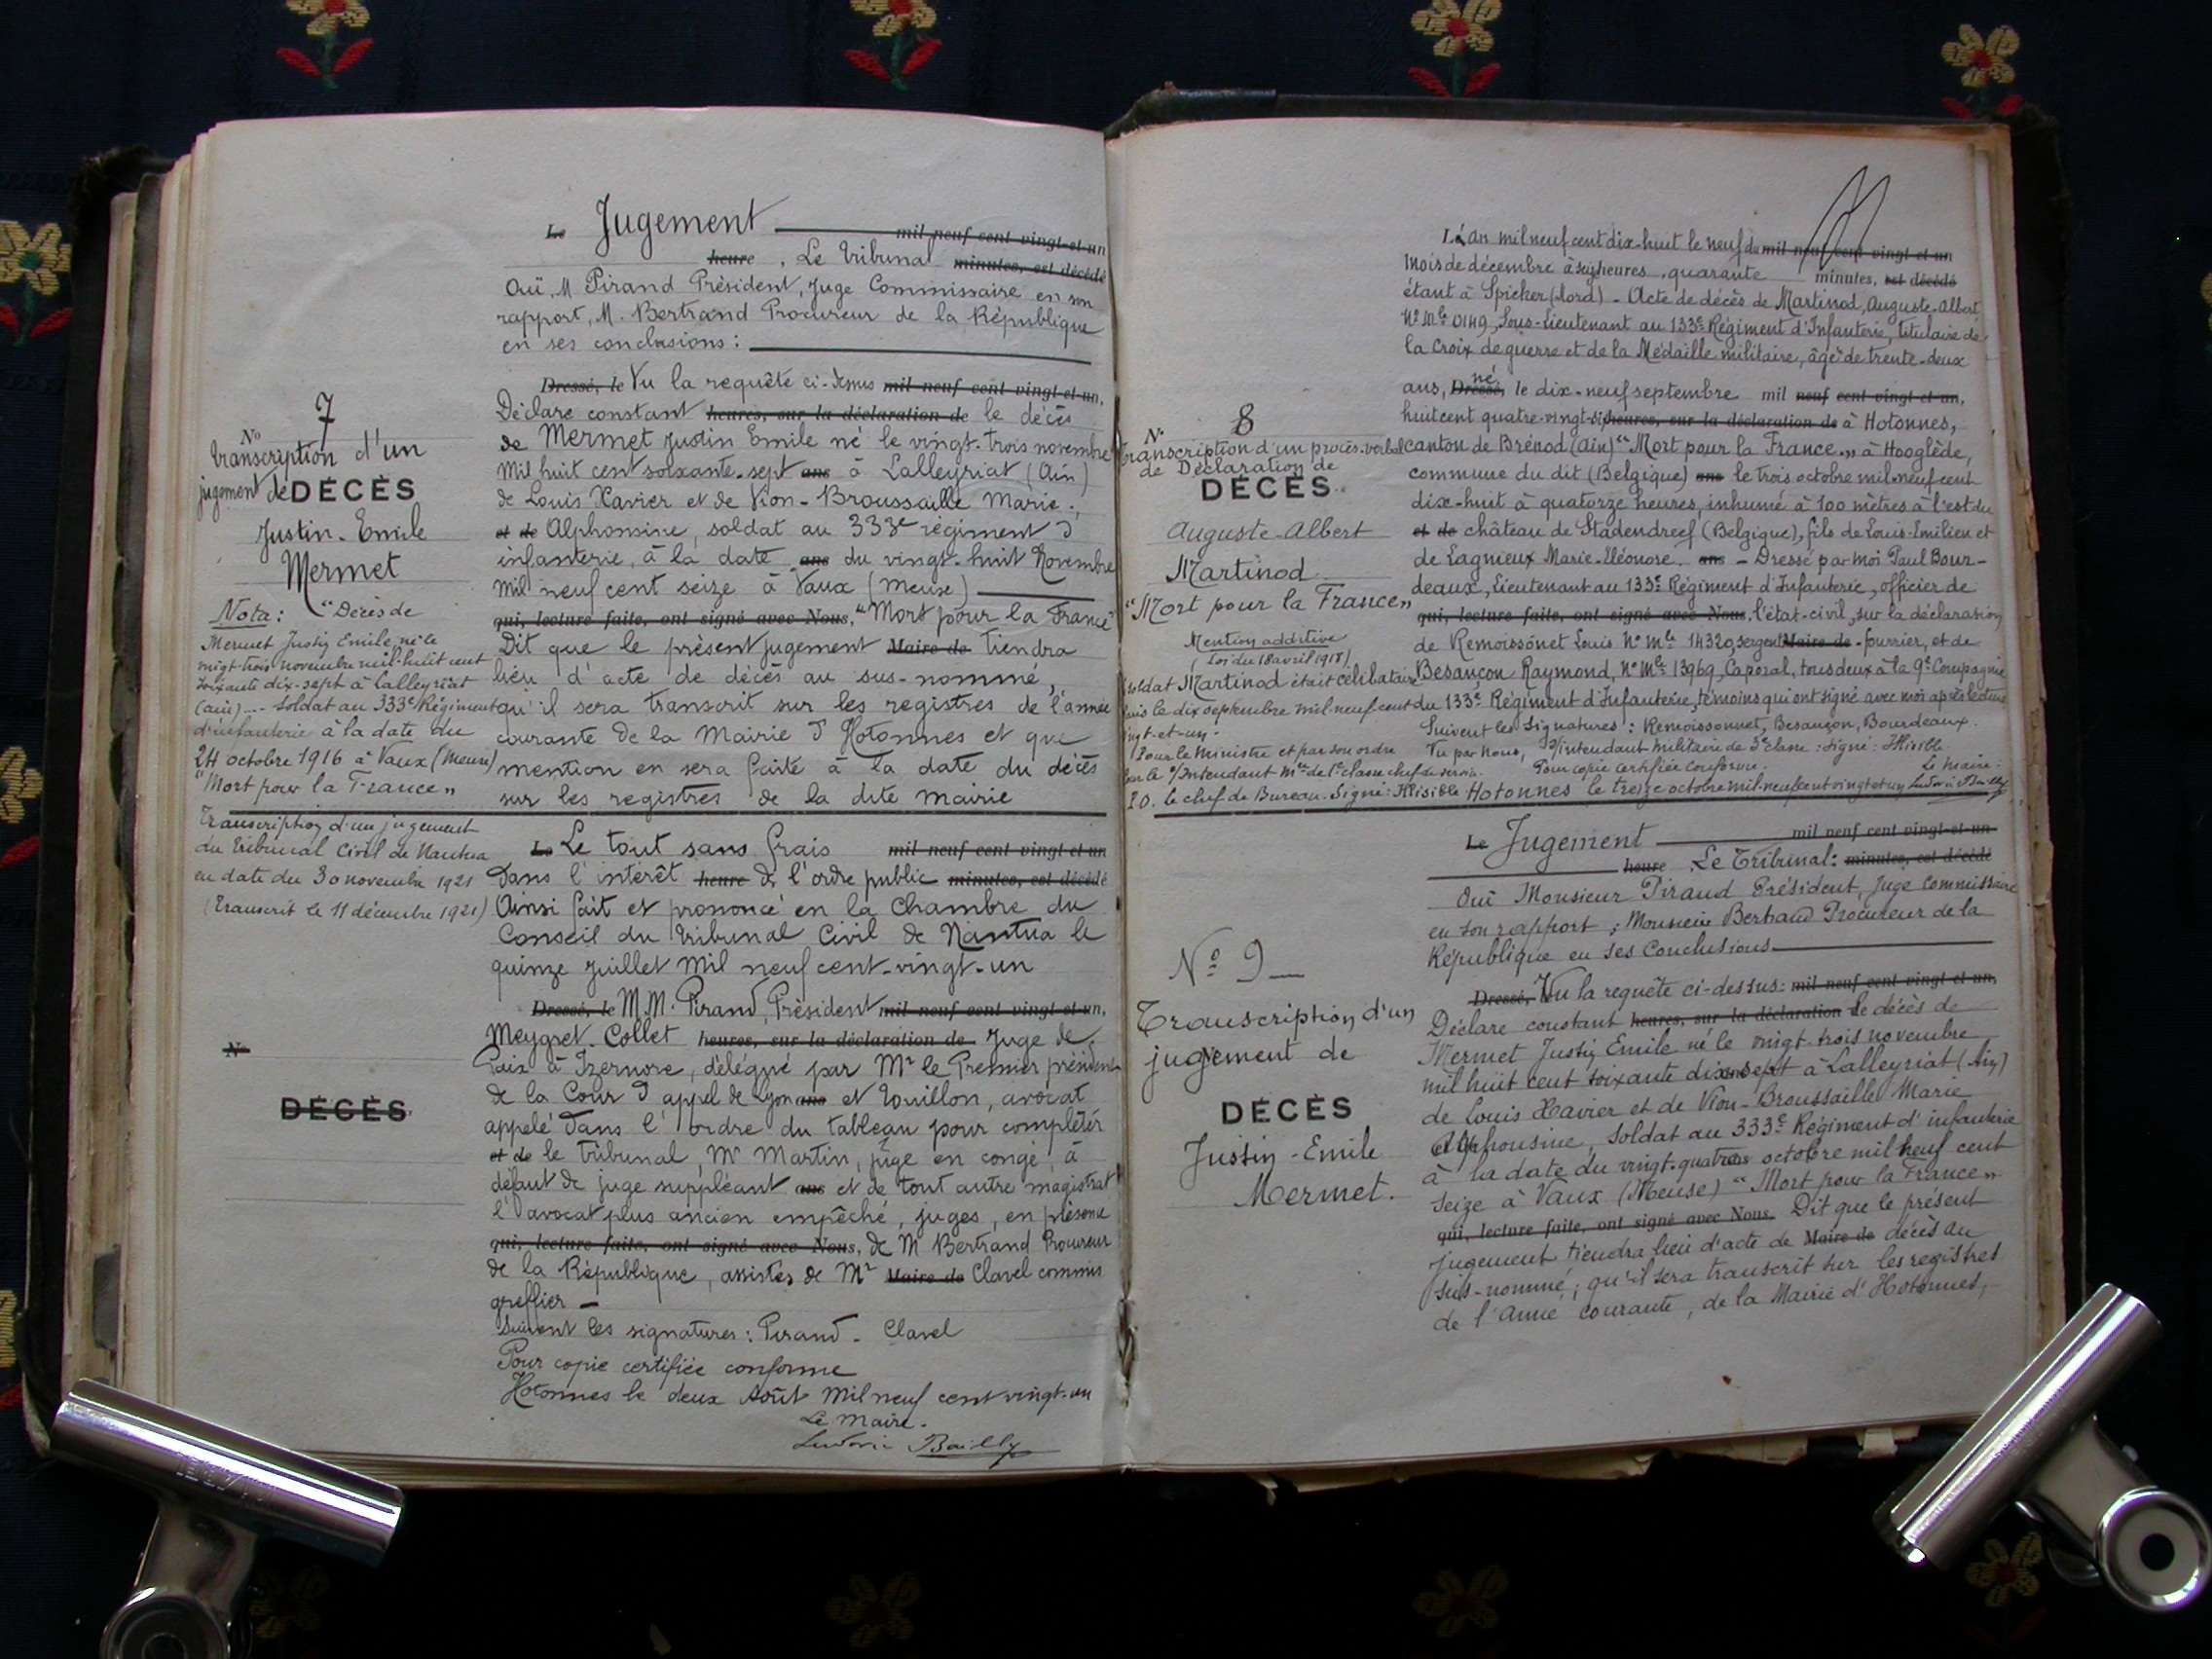 Le Jugement mil neuf cent vingt-et-un
heure, Le Tribunal minutes, est décédé
Ouï, M Pirand Président, Juge Commissaire en son
rapport, M. Bertrand Procureur de la République
en ses conclusions :
Dressé, le Vu la requête ci-dessus mil neuf cent vingt-et-un,
Déclare constant heures, sur la déclaration de le décès
de Mermet Justin Emile né le vingt-trois novembre
mil huit cent soixante-sept ans à Lalleyriat (Ain)
de Louis Xavier et de Vion-Broussaille Marie,
et de Alphonsine, soldat au 333e régiment d'
infanterie, à la date ans du vingt-huit Novembre
mil neuf cent seize à Vaux (Meuse)
qui, lecture faite, ont signé avec Nous, "Mort pour la France"
Dit que le présent jugement Maire de tiendra
lieu d'acte de décès au sus-nommé,
qu'il sera transcrit sur les registres de l'année
courante de la Mairie d'Hotonnes et que
mention en sera faite à la date du décès
sur les registres de la dite mairie
No 7
transcription d'un
jugement de DÉCÈS
Justin-Emile
Mermet
Nota : "Décès de
Mermet Justin Emile, né le
vingt-trois novembre mil-huit cent
soixante dix-sept à Lalleyriat
(Ain) ... Soldat au 333e Régiment
d'infanterie à la date du
24 octobre 1916 à Vaux (Meuse)
"Mort pour la France"
Transcription d'un jugement
du Tribunal Civil de Nantua
en date du 30 novembre 1921
(Transcrit le 11 décembre 1921)
Le Le tout sans frais mil neuf cent vingt et un
Dans l'intérêt heure de l'ordre public minutes, est décédé
Ainsi fait et prononcé en la Chambre du
Conseil du Tribunal Civil de Nantua le
quinze Juillet mil neuf cent-vingt-un
Dressé, le M.M. Pirand, Président mil neuf cent vingt-et-un,
Meygret-Collet heures, sur la déclaration de Juge de
Paix à Izernore, délégué par Mr le Premier président
de la Cour d'appel de Lyon ans et Touillon, avocat
appelé dans l'ordre du tableau pour compléter
et de le tribunal, Mr Martin, juge en congé, à
défaut de juge suppléant ans et de tout autre magistrat
l'avocat plus ancien empêché, juges, en présence
qui, lecture faite, ont signé avec Nous, de M Bertrand Procureur
de la République, assistés de Mr Maire de Clavel commis
greffier
Suivent les signatures : Pirand - Clavel
Pour copie certifiée conforme
Hotonnes le deux Août mil neuf cent vingt-un
Le Maire.
Ludovic Bailly
No
DÉCÈS
L'an mil neuf cent dix-huit le neuf du mil neuf cent vingt et un
mois de décembre à heures, quarante minutes, est décédé
étant à Spicker (Nord) - Acte de décès de Martinod, Auguste-Albert
No Mle 0149, Sous-Lieutenant au 133e Régiment d'Infanterie, titulaire de
la Croix de guerre et de la Médaille militaire, âgé de trente-deux
ans, Dressé, né le dix-neuf septembre mil neuf cent vingt et un,
huit cent quatre-vingt-six heures, sur la déclaration de à Hotonnes,
canton de Brénod (Ain) "Mort pour la France" à Hooglède,
commune du dit (Belgique) ans le trois octobre mil-neuf cent
dix-huit à quatorze heures, inhumé à 100 mètres à l'est du
et de château de Stadendreef (Belgique), fils de Louis-Emilien et
de Lagnieux Marie-Eléonore. ans - Dressé par moi Paul Bour-
deaux, Lieutenant au 133e Régiment d'Infanterie, officier de
qui, lecture faite, ont signé avec Nous, l'état-civil, sur la déclaration
de Remoissonet Louis No Mle 14320, sergent Maire de -fourrier, et de
Besançon Raymond, No Mle 13969, Caporal, tous deux à la 9e Compagnie
du 133e Régiment d'Infanterie, témoins qui ont signé avec moi après lecture
Suivent les Signatures : Remoissonnet, Besançon, Bourdeaux.
Vu par Nous, S/intendant militaire de 3e classe : signé : Illisible
Pour copie certifiée conforme. Le maire.
Hotonnes le treize octobre mil-neuf cent vingt et un Ludovic Bailly
No 8
transcription d'un procès-verbal
de Déclaration de
DÉCÈS
Auguste-Albert
Martinod
"Mort pour la France"
Mention additive
(Loi du 18 avril 1918)
soldat Martinod était célibataire
le dix septembre mil-neuf cent
vingt-et-un.
Pour le Ministre et par son ordre
Pour le S/Intendant Mre de 1e classe chef de service.
P.O. le chef de Bureau. Signé : Illisible
Le Jugement mil neuf cent vingt-et-un
heure Le Tribunal : minutes, est décédé
Ouï Monsieur Piraud Président, Juge commissaire
en son rapport ; Monsieur Bertrand Procureur de la
République en ses Conclusions
Dressé, Vu la requête ci-dessus : mil neuf cent vingt et un,
Déclare constant heures, sur la déclaration le décès de
Mermet Justin Emile né le vingt-trois novembre
mil huit cent soixante dix ans sept à Lalleyriat (Ain)
de Louis Xavier et de Vion-Broussaille Marie
Alphonsine, soldat au 333e Régiment d'infanterie
à la date du vingt-quatre ans octobre mil neuf cent
seize à Vaux (Meuse) "Mort pour la France"
qui, lecture faite, ont signé avec Nous. Dit que le présent
jugement tiendra lieu d'acte de Maire de décès au
sus-nommé ; qu'il sera transcrit sur les registres
de l'année courante, de la Mairie d'Hotonnes,
No 9
Transcription d'un
jugement de
DÉCÈS
Justin-Emile
Mermet.